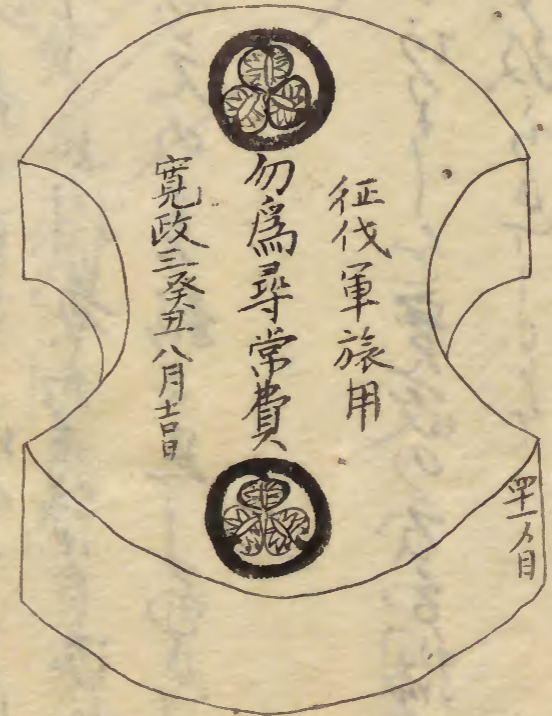 征伐軍旅用
勿爲尋常費
寛政三癸丑八月吉日
四十一〆目